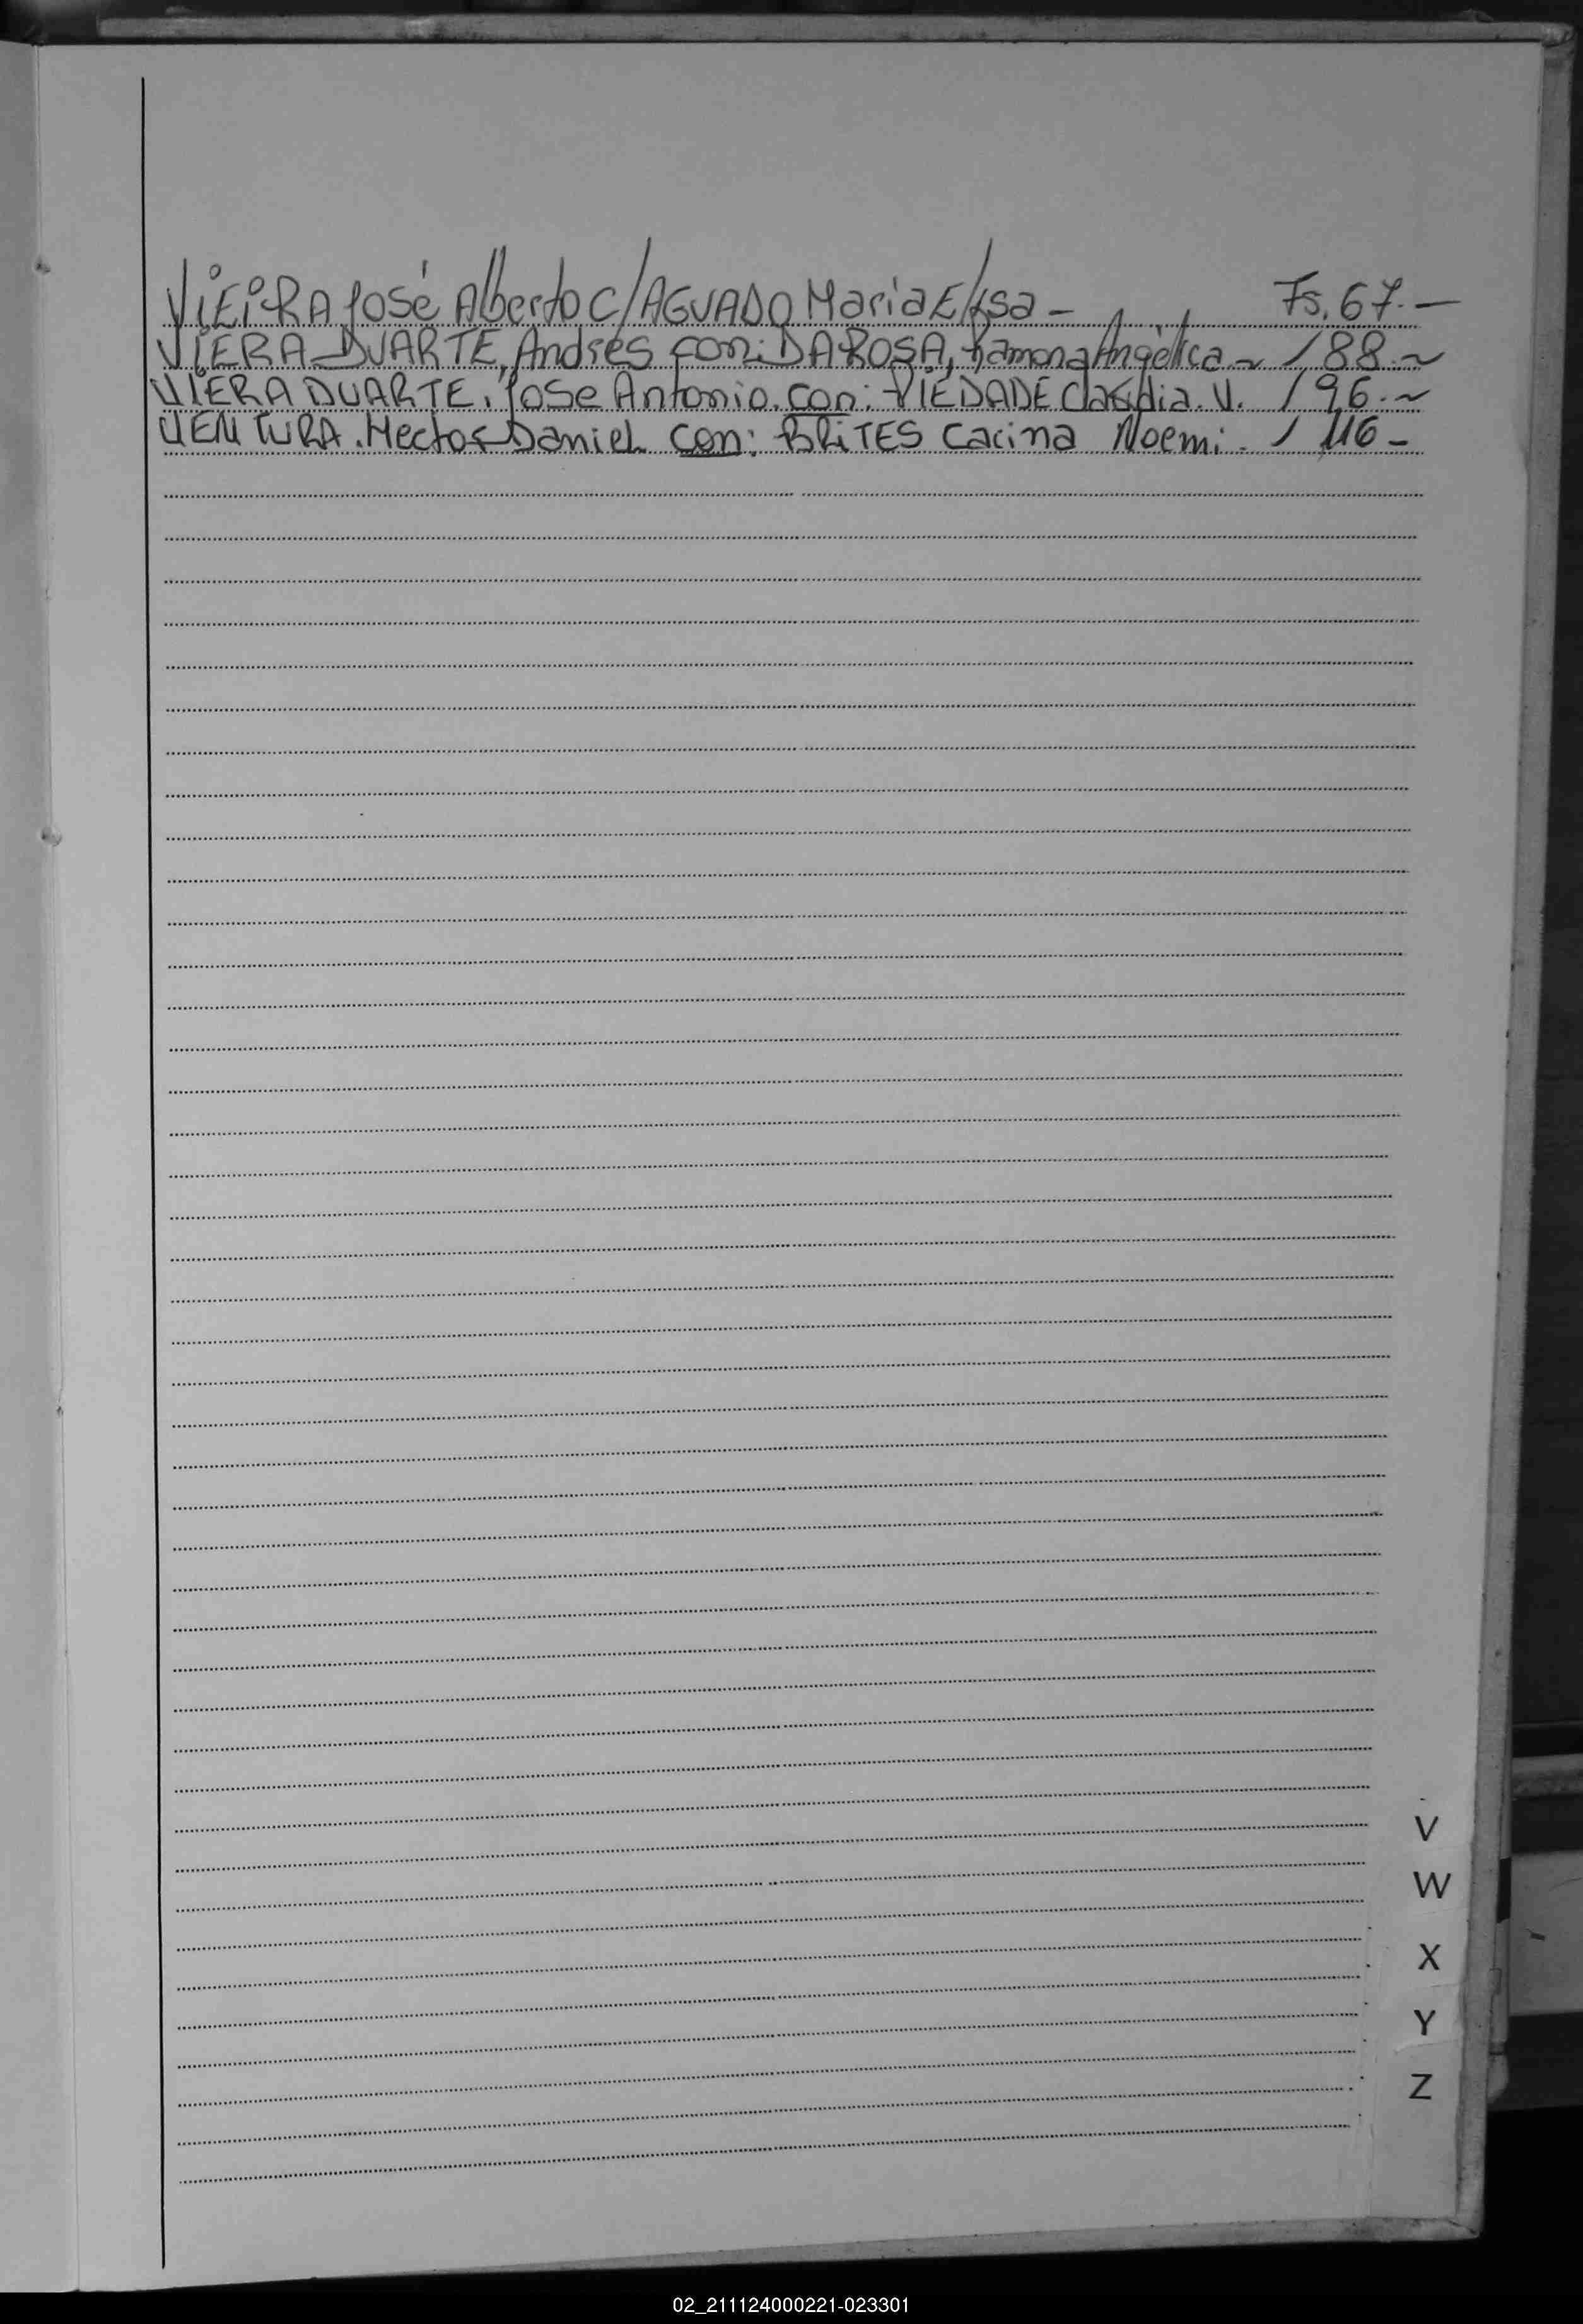 VIEIRA José Alberto C/AGUADO Maria Elisa - Fs. 67.-
VIERA DUARTE, Andrés con: DA ROSA, Ramona Angélica ~ / 88.~
VIERA DUARTE, Jose Antonio. con: VIEDADE Claudia. V. / 96.~
VENTURA. Hector Daniel con: BRITES Carina Noemi. / 116-
V
W
X
Y
Z
02_211124000221-023301